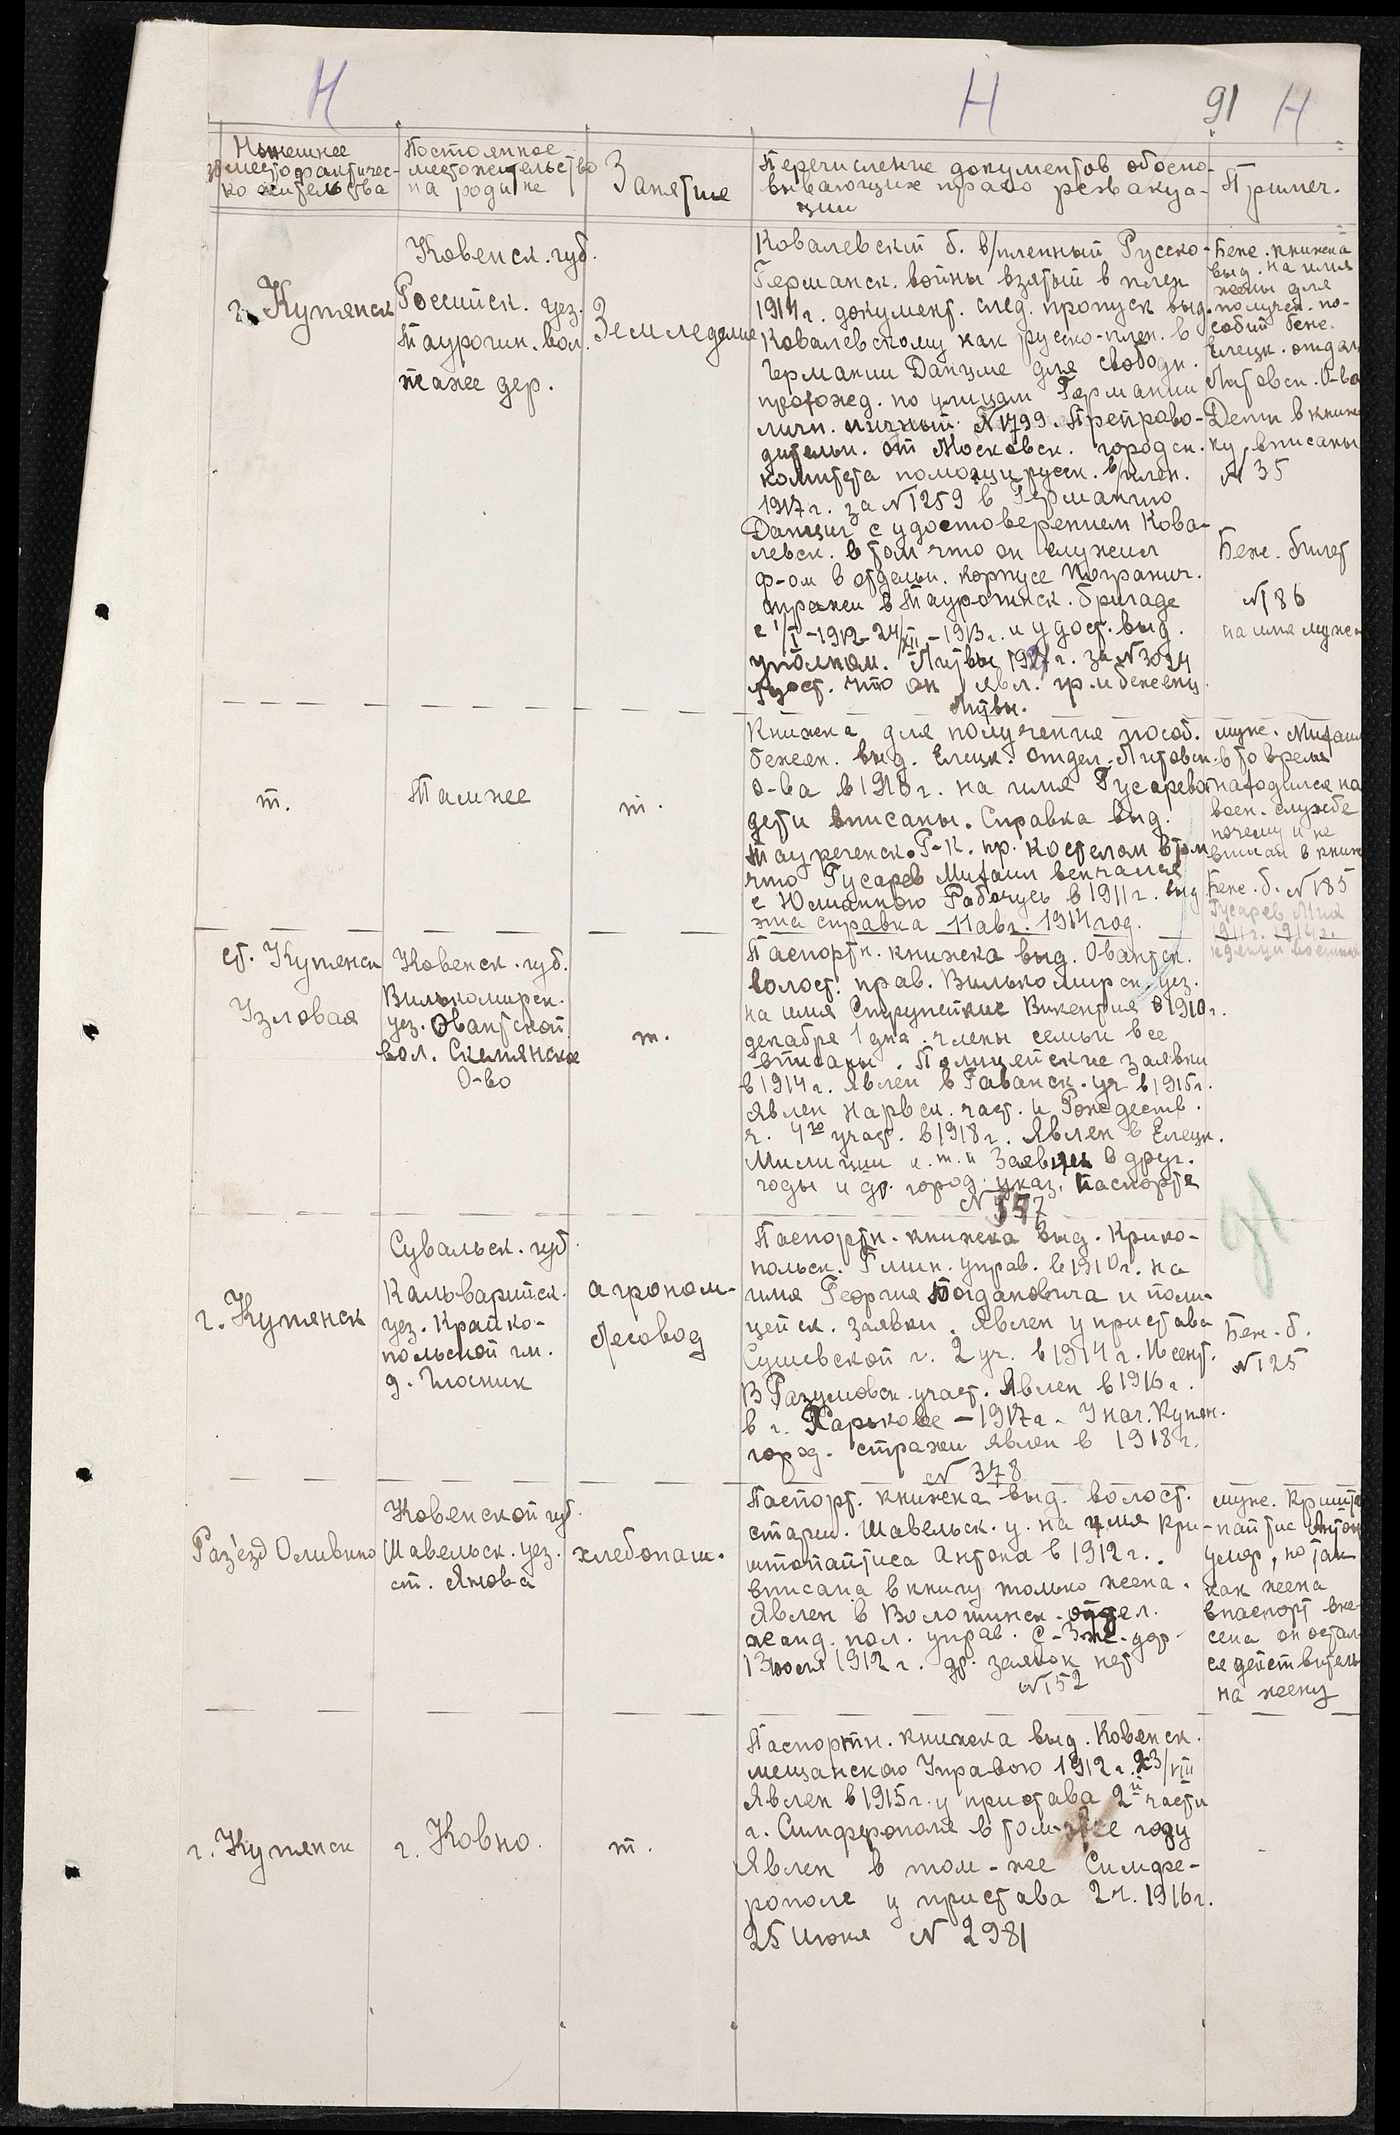 Н Н 91 Н
Нынешнее
место фактичес-
ко жительства
Постоянное
местожительство
на родине
Занятие
Перечисление документов обосно-
вывающих право реэвакуа-
ции
Примеч.
г. Купянск
Ковенск. губ.
Российск. уез.
Таурогин. вол.
тоже дер.
Земледелие
Ковалевский б. в/пленный Русско-
Германск. войны взятый в плен
1914 г. документ. след. пропуск выд.
Ковалевскому как русско-плен. в
Германии Данциге для свободн.
прохожд. по улицам Германии
личн. личный N 1799. Препрово-
дительн. от Московск. городск.
комитета помощи русск. в/плен.
1917 г. за N 1259 в Германию
Данциг с удостоверением Кова-
левск. в том что он служил
в отдельн. корпусе Погранич.
стражи в Таурогинск. бригаде
с 1/I-1912-24/XII-1913 г. и удост. выд.
уполном. Литвы 1921 г. за N 3024
удост. что он явл. гр. и беженц.
Литвы.
Беж. книжка
выд. на имя
жены для
получен. по-
собий беж.
Елецк. отдел
Литовск. О-ва
Дети в книж
ку вписаны
N 35
Беж. билет
N 186
на имя мужа
т.
Там же
т.
Книжка для получения пособ.
бежен. выд. Елецк. отдел. Литовск.
о-ва в 1918 г. на имя Гусарева
дети вписаны. Справка выд.
Р-К. пр. костелом в том
что Гусарев Михаил венчался
с Юлианною в 1911 г. выд
эта справка 11 авг. 1914 год.
муж. Михаил
в то время
находился на
воен. службе
почему и не
вписан в книж
Беж. б. N 185
Гусарев Мих
1911 г. 1914 г.
ст. Купянск
Узловая
Ковенск. губ.
Вилькомирск.
уез. Овантской
вол. Скемянское
О-во
т.
Паспортн. книжка выд. Овантск.
волост. прав. Вилькомирск. уез.
на имя Викентия в 1910 г.
декабря 1 дня. члены семьи все
вписаны. Полицейские заявки
в 1914 г. явлен в Гаванск. уч в 1915 г.
явлен Нарвск. част. и Рождеств.
ч. 4го участ. в 1918 г. Явлен в Елецк.
Милиции и т. п Заявки в друг.
годы и др. город. указ. паспорте
N 557
г. Купянск
Сувальск. губ.
Кальварийск.
уез. Крайко-
польской гм.
д. Глосник
агроном-
лесовод
Паспортн. книжка выд. Крико-
польск. Гмин. управ. в 1910 г. на
имя Георгия Богдановича и поли-
цейск. заявки. Явлен у пристава
Сущевской ч. 2 уч. в 1914 г. 16 сент.
В Разумовск. участ. Явлен в 1916 г.
в г. Харькове - 1917 г. У нач. Купян.
город. стражи явлен в 1918 г.
N 378
Беж. б.
N 125
Раз'езд Оливино
Ковенской губ.
Шавельск. уез.
ст. Янова
хлебопаш.
Паспорт. книжка выд. волост.
старш. Шавельск. у. на имя Кри-
штопайтиса Антона в 1912 г.
вписана в книгу только жена.
Явлен в Волошинск. отдел.
жанд. пол. управ. С-З ж. дор.
13 июля 1912 г. др. заявок нет
N 152
муж. Кришто
пайтис Антон
умер, но так
как жена
в паспорт вне-
сена он остал-
ся действитель
на жену
г. Купянск
г. Ковно.
т.
Паспортн. книжка выд. Ковенск.
мещанскою Управою 1912 г. 23/VIII
Явлен в 1915 г. у пристава 2й части
г. Симферополя в том же году
Явлен в том-же Симфе-
рополе у пристава 2 ч. 1916 г.
25 Июня N 2981